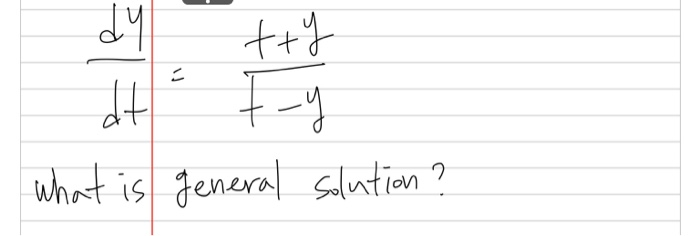 dy/dt = t+y/t-y
what is general solution?